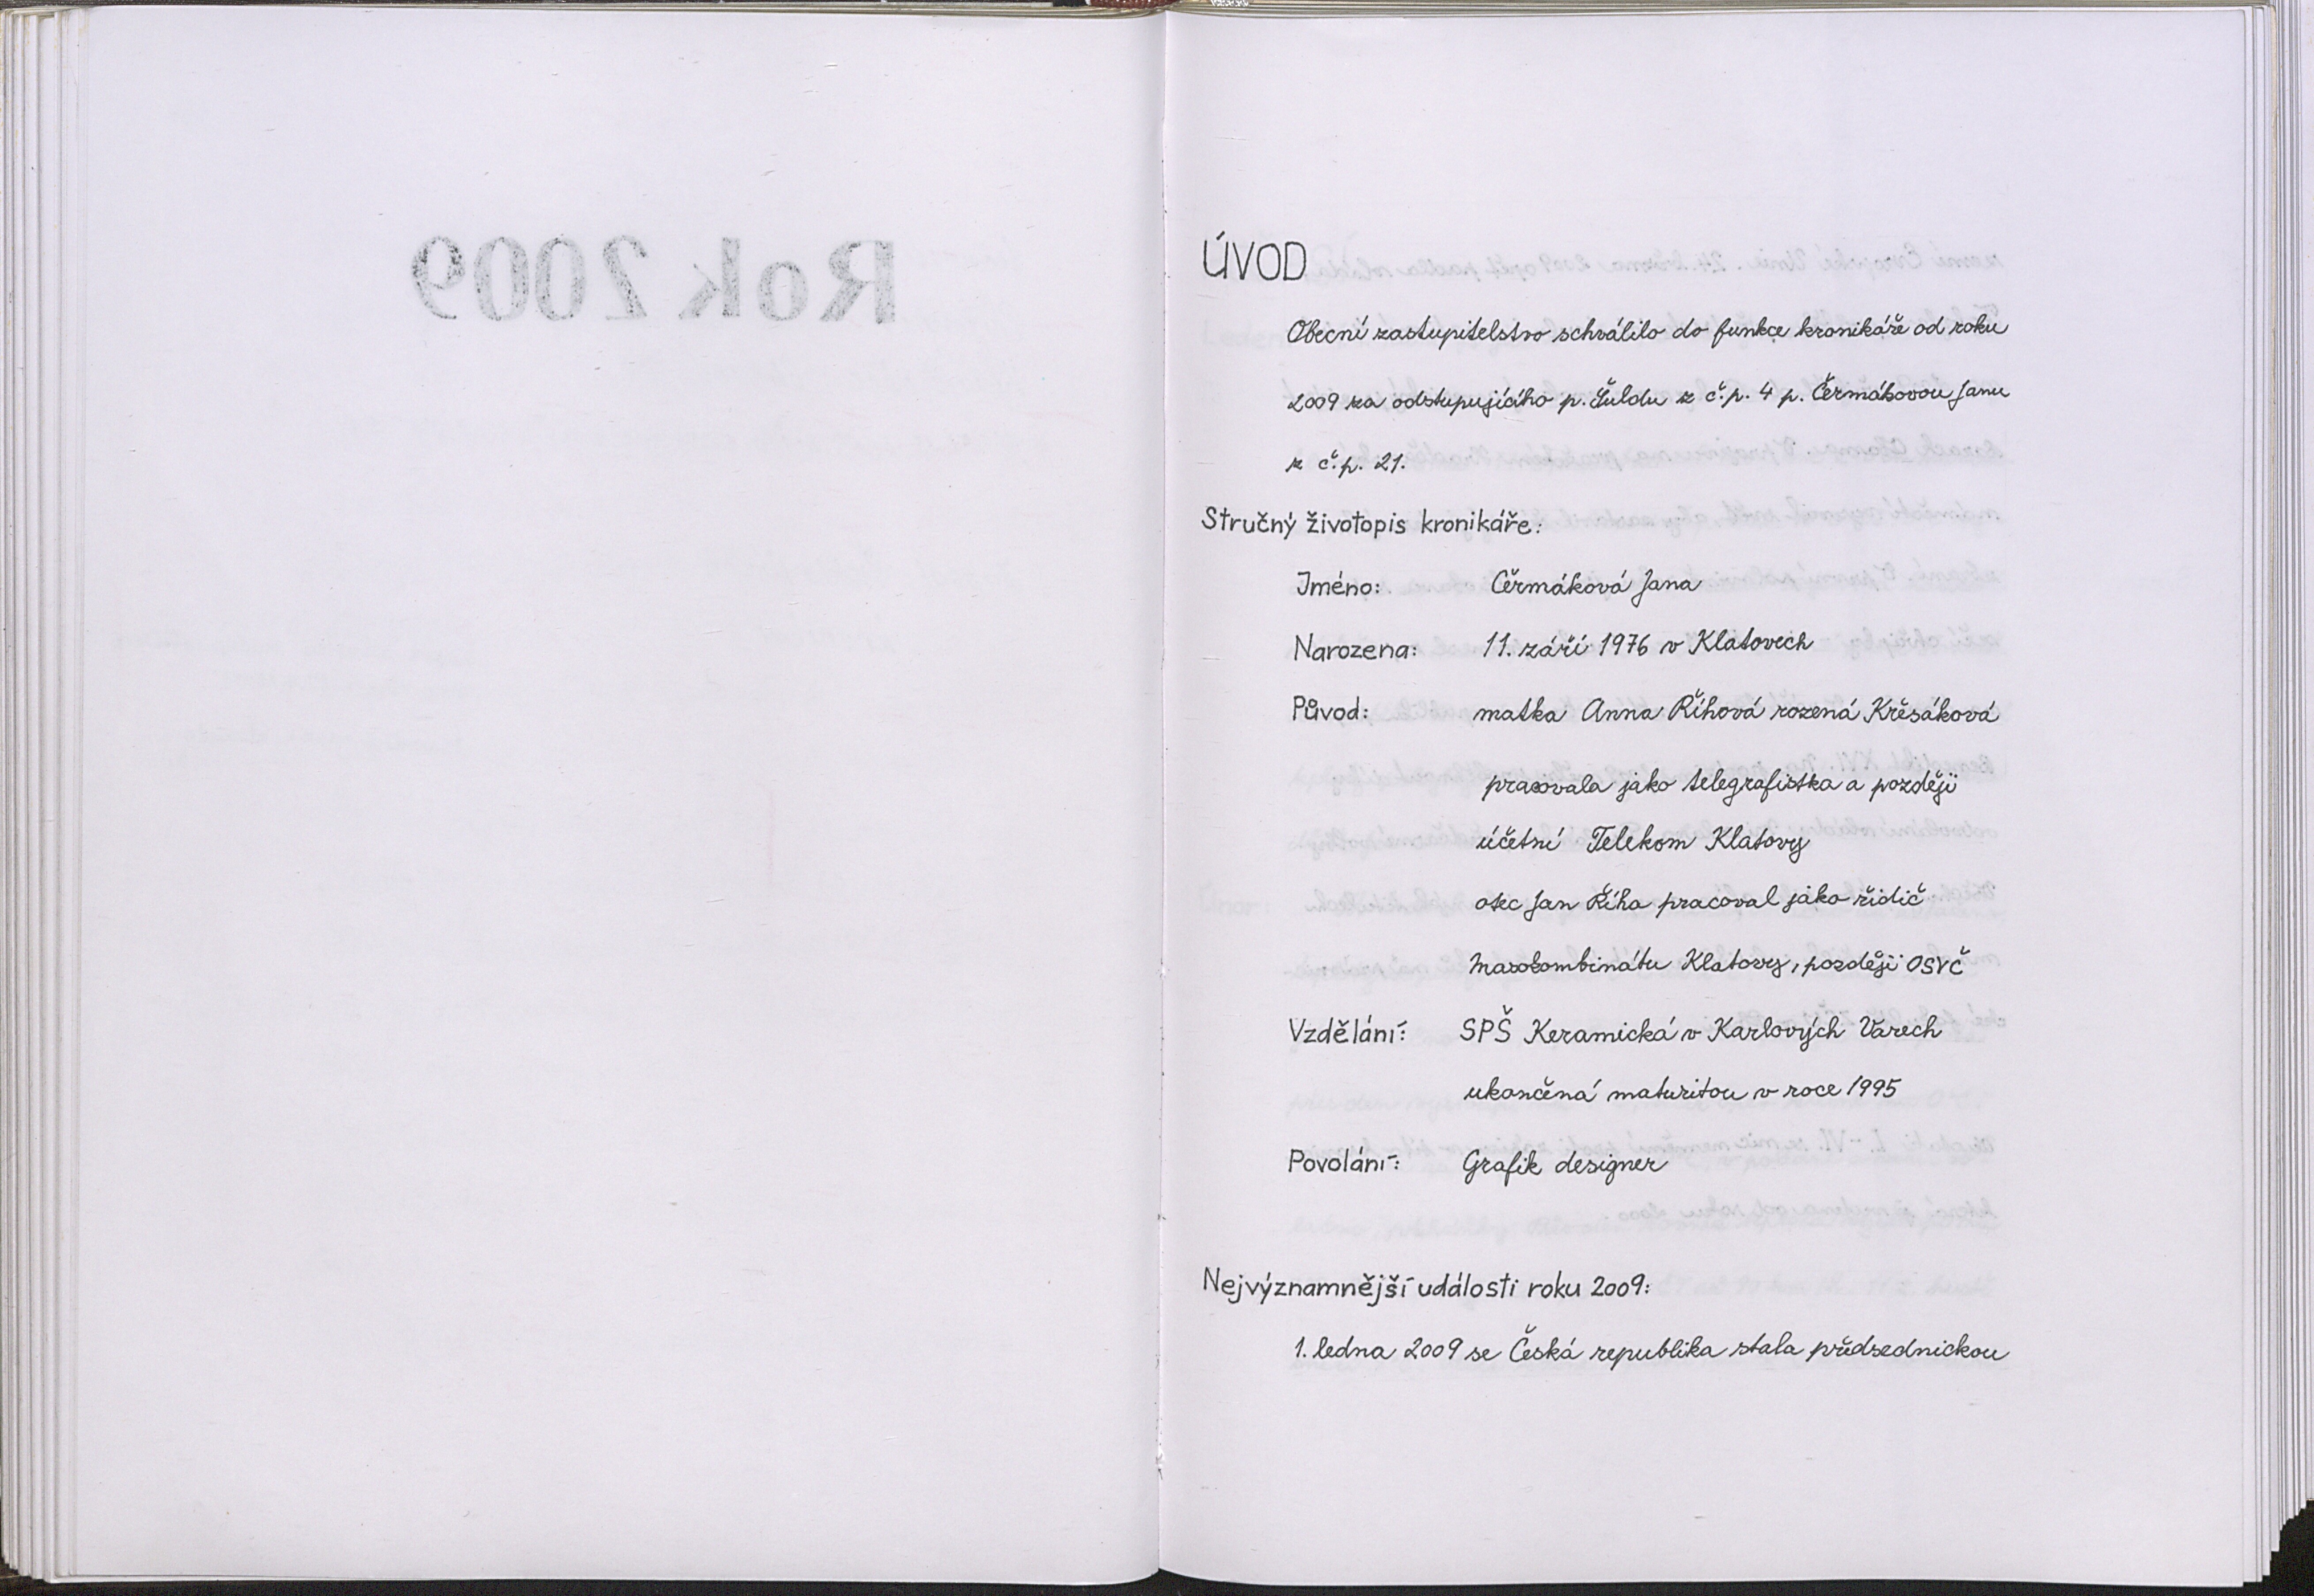 Rok 2009
ÚVOD
Obecní zastupitelstvo schválilo do funkce kronikáře od roku
2009 za odstupujícího p. Šuldu z č.p. 4 p. Čermákovou Janu
z č.p. 21.
Stručný životopis kronikáře:
Jméno: Čermáková Jana
Narozena: 11. září 1976 v Klatovech
Původ: matka Anna Říhová rozená Křesáková
pracovala jako telegrafistka a později
účetní Telekom Klatovy
otec Jan Říha pracoval jako řidič
Masokombinátu Klatovy, později OSVČ
Vzdělání: SPŠ Keramická v Karlových Varech
ukončená maturitou v roce 1995
Povolání: Grafik designer
Nejvýznamnější události roku 2009:
1. ledna 2009 se Česká republika stala předsednickou